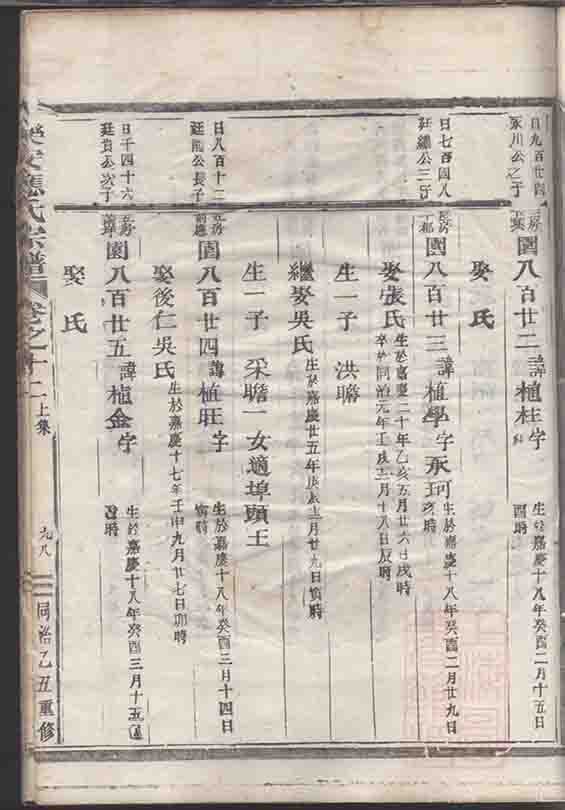 日九百廿四
永川公之子
園八百廿二諱植桂字
生於嘉慶十八年癸酉二月十五日
酉時
娶氏
日七百四八
廷繼公三子
園八百廿三諱植學字永珂
生於嘉慶十八年癸酉二月廿九日
亥時
娶張氏
生於嘉慶二十年乙亥五月廿六日戌時
卒於同治元年壬戌十二月十八日辰時
生一子 洪瞻
繼娶吳氏
生於嘉慶廿五年庚辰十二月廿九日寅時
生一子 采瞻一女適埠頭王
日八百十二
廷龍公長子
園八百廿四諱植旺字
生於嘉慶十八年癸酉三月十四日
寅時
娶後仁吳氏
生於嘉慶十七年壬申九月廿七日卯時
日千四十六
廷貴公次子
園八百廿五諱植金字
生於嘉慶十八年癸酉三月十五
時
娶氏
應氏宗譜
卷之十二
上集
九八
同治乙丑重修